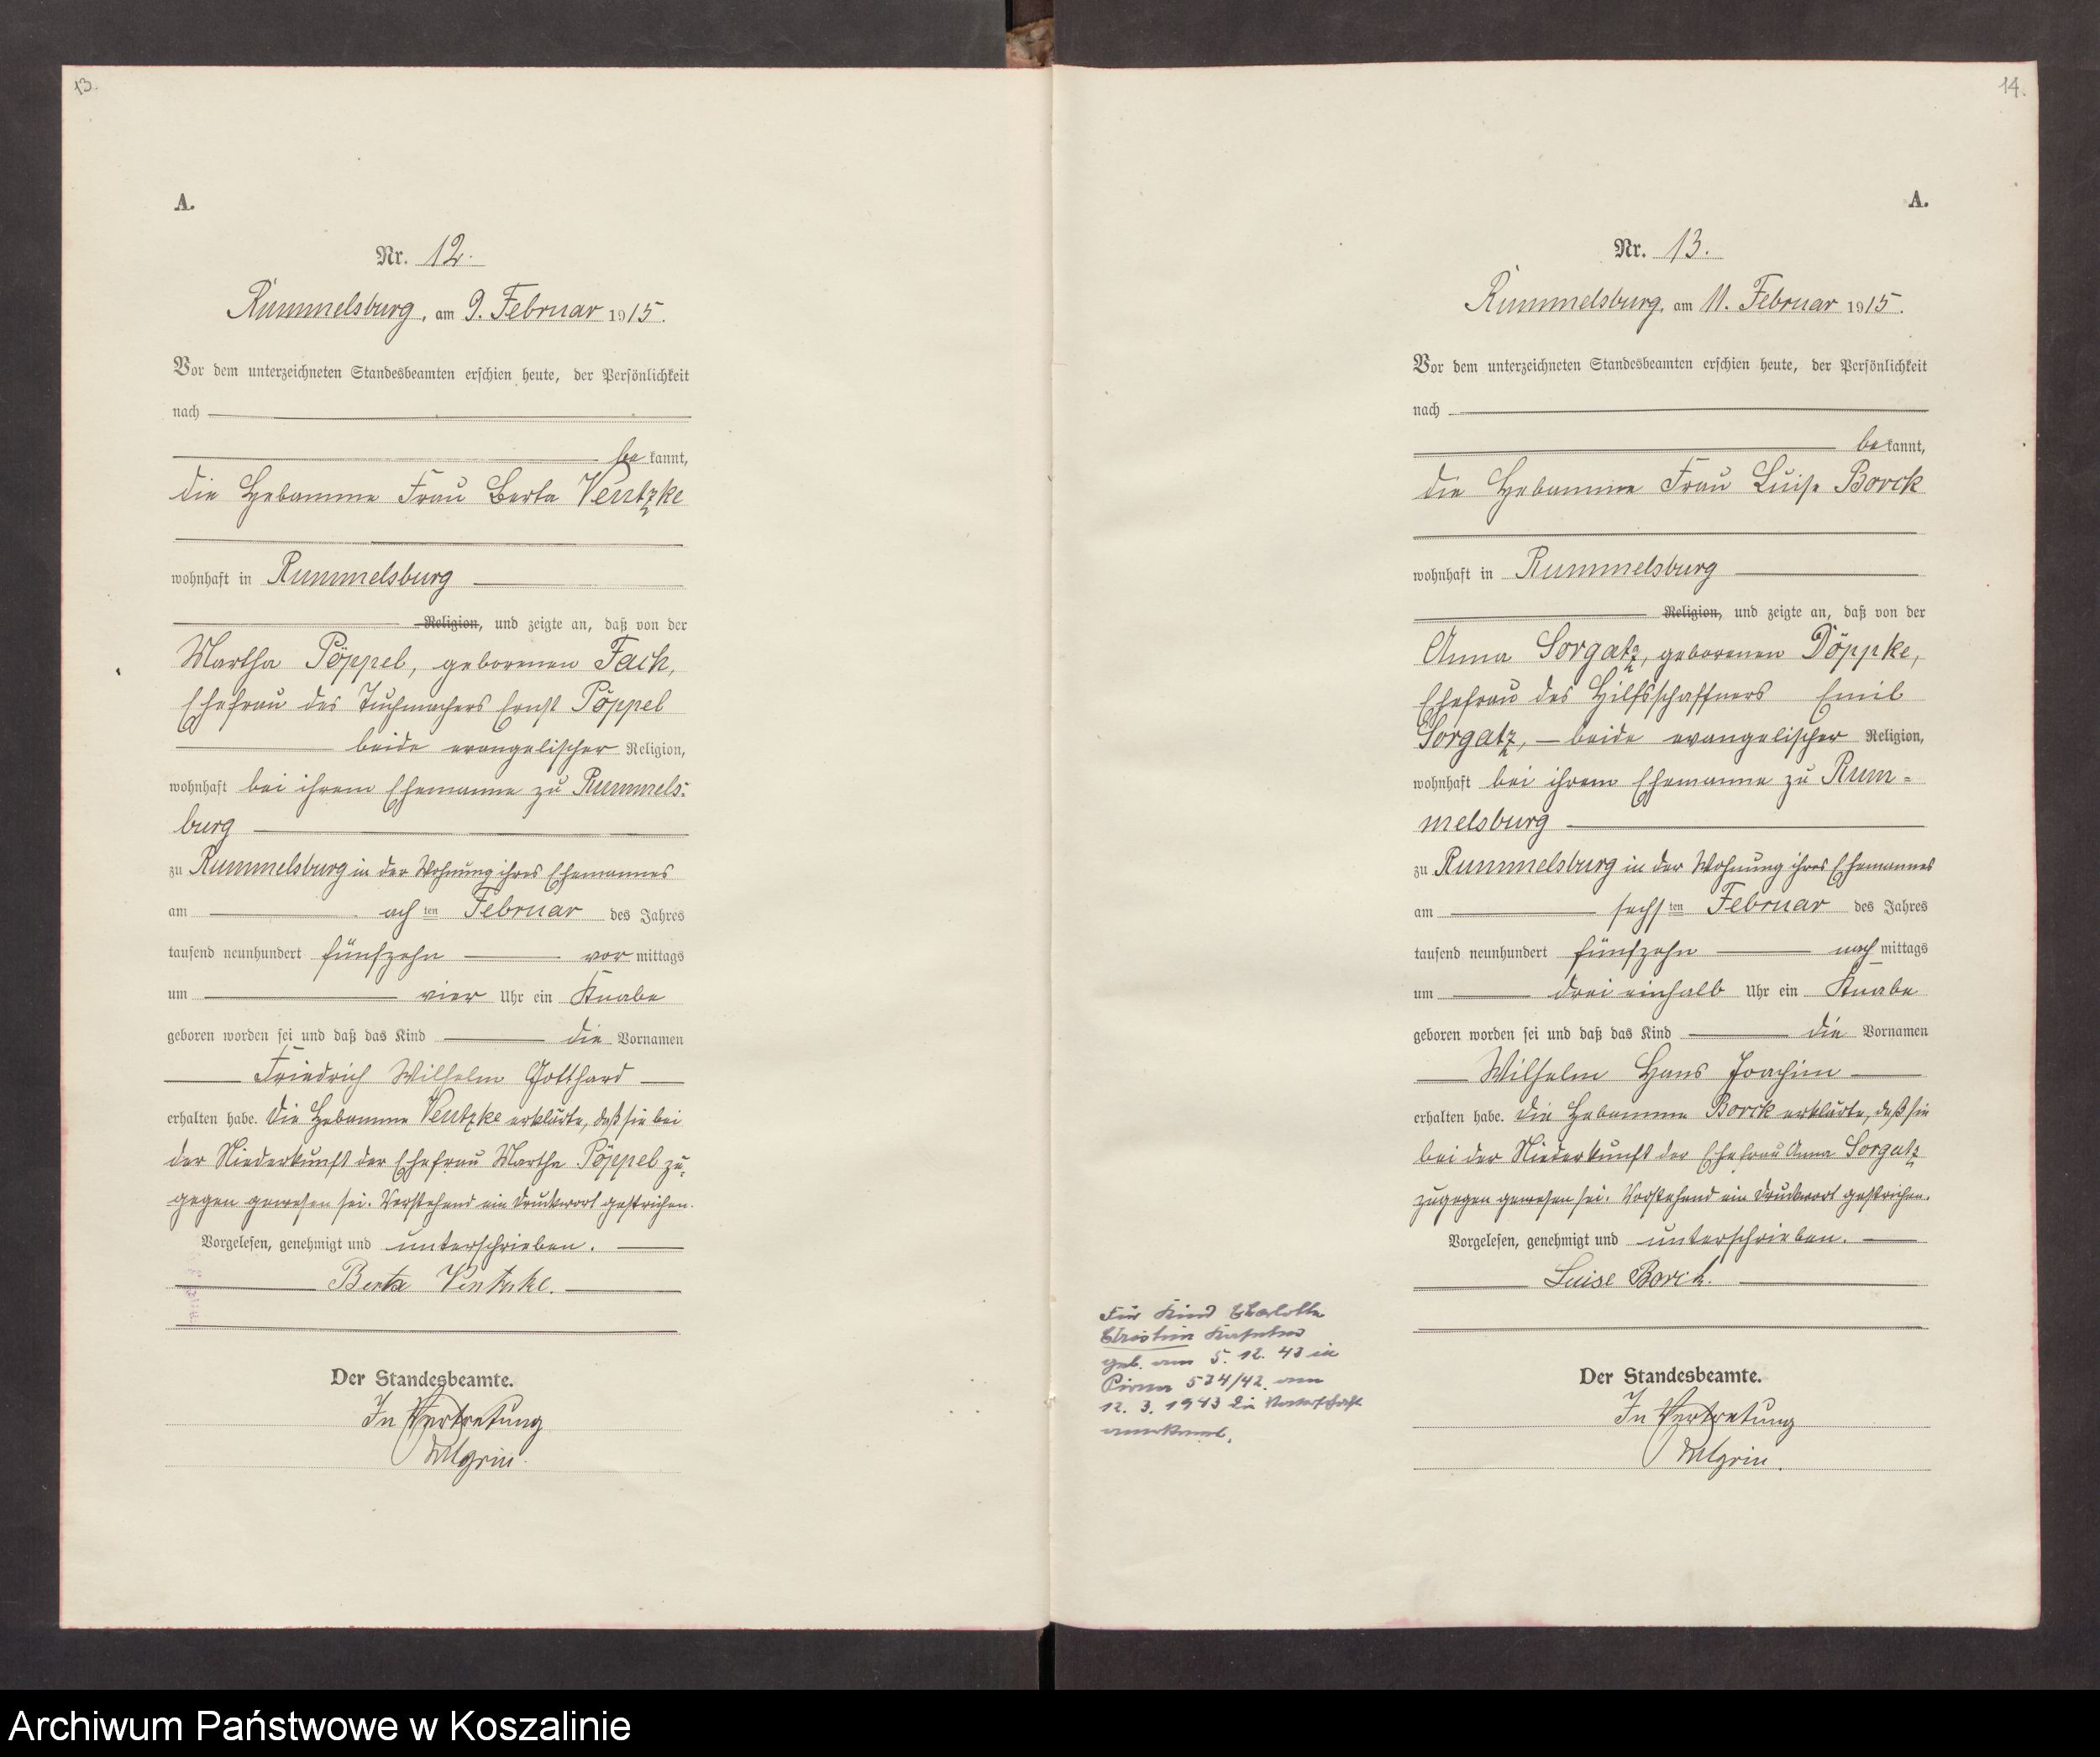 13.
A.
Nr. 12.
Rummelsburg, am 9. Februar 1915.
Vor dem unterzeichneten Standesbeamten erschien heute, der Persönlichkeit
nach
bekannt,
die Hebamme Frau Berta Ventzke
wohnhaft in Rummelsburg
Religion, und zeigte an, daß von der
Martha Pöppel, geborenen Fach,
Ehefrau des Tuchmachers Ernst Pöppel
beide evangelischer Religion,
wohnhaft bei ihrem Ehemanne zu Rummels:
burg
zu Rummelsburg in der Wohnung ihres Ehemannes
am achten Februar des Jahres
tausend neunhundert fünfzehn vormittags
um vier Uhr ein Knabe
geboren worden sei und daß das Kind die Vornamen
Friedrich Wilhelm Gotthard
erhalten habe. Die Hebamme Ventzke erklärte, daß sie bei
der Niederkunft der Ehefrau Martha Pöppel zu-
gegen gewesen sei. Vorstehend ein Druckwort gestrichen.
Vorgelesen, genehmigt und unterschrieben.
Berta Ventzke.
Der Standesbeamte.
In Vertretung
14.
A.
Nr. 13.
Rummelsburg, am 11. Februar 1915.
Vor dem unterzeichneten Standesbeamten erschien heute, der Persönlichkeit
nach
bekannt,
die Hebamme Frau Luise Borck
wohnhaft in Rummelsburg
Religion, und zeigte an, daß von der
Anna Sorgatz, geborenen Döppke,
Ehefrau des Hilfsschaffners Emil
Sorgatz, – beide evangelischer Religion,
wohnhaft bei ihrem Ehemanne zu Rum=
melsburg
zu Rummelsburg in der Wohnung ihres Ehemannes
am sechsten Februar des Jahres
tausend neunhundert fünfzehn nachmittags
um drei einhalb Uhr ein Knabe
geboren worden sei und daß das Kind die Vornamen
Wilhelm Hans Joachim
erhalten habe. Die Hebamme Borck erklärte, daß sie
bei der Niederkunft der Ehefrau Anna Sorgatz
zugegen gewesen sei. Vorstehend ein Druckwort gestrichen.
Vorgelesen, genehmigt und unterschrieben.
Luise Borck.
Der Standesbeamte.
In Vertretung
Für Kind Charlotte
Christin
geb. am 5. 12. 43 in
Pirna 574/42. am
12. 3. 1943 die Vaterschaft
anerkannt.
Archiwum Państwowe w Koszalinie